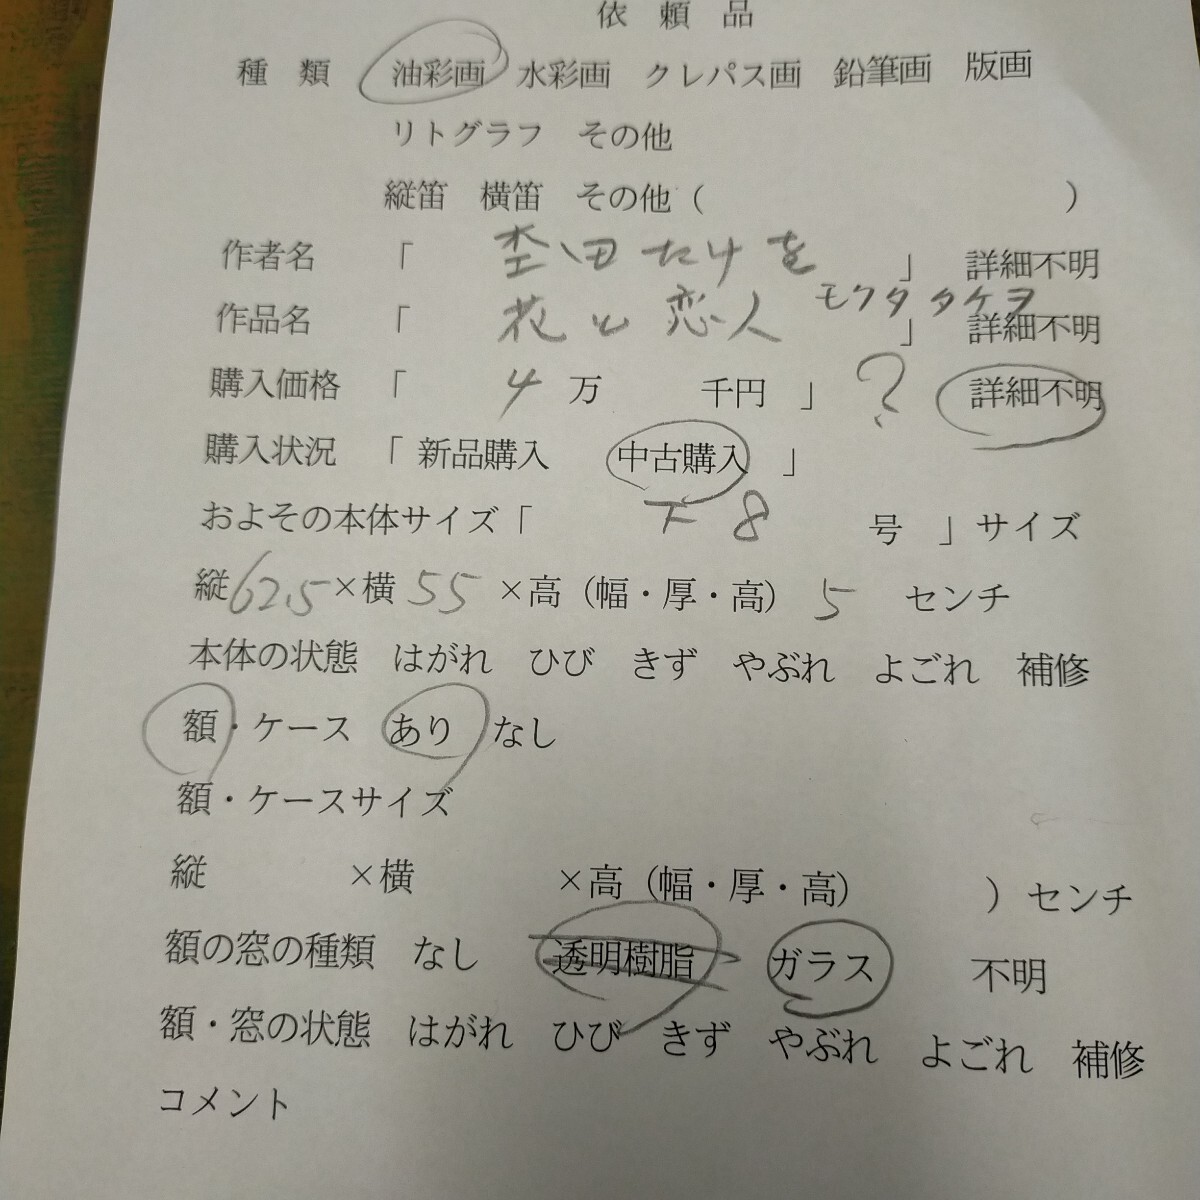 依頼品
種類 油彩画 水彩画 クレパス画 鉛筆画 版画
リトグラフ その他
縦笛 横笛 その他（ ）
作者名 「 杢田たけを 」 詳細不明
モクタ タケヲ
作品名 「 花と恋人 」 詳細不明
購入価格 「 4 万 千円 」 ? 詳細不明
購入状況 「 新品購入 中古購入 」
およその本体サイズ「 F 8 号 」サイズ
縦 62.5 ×横 55 ×高（幅・厚・高） 5 センチ
本体の状態 はがれ ひび きず やぶれ よごれ 補修
額・ケース あり なし
額・ケースサイズ
縦 ×横 ×高（幅・厚・高） ）センチ
額の窓の種類 なし 透明樹脂 ガラス 不明
額・窓の状態 はがれ ひび きず やぶれ よごれ 補修
コメント